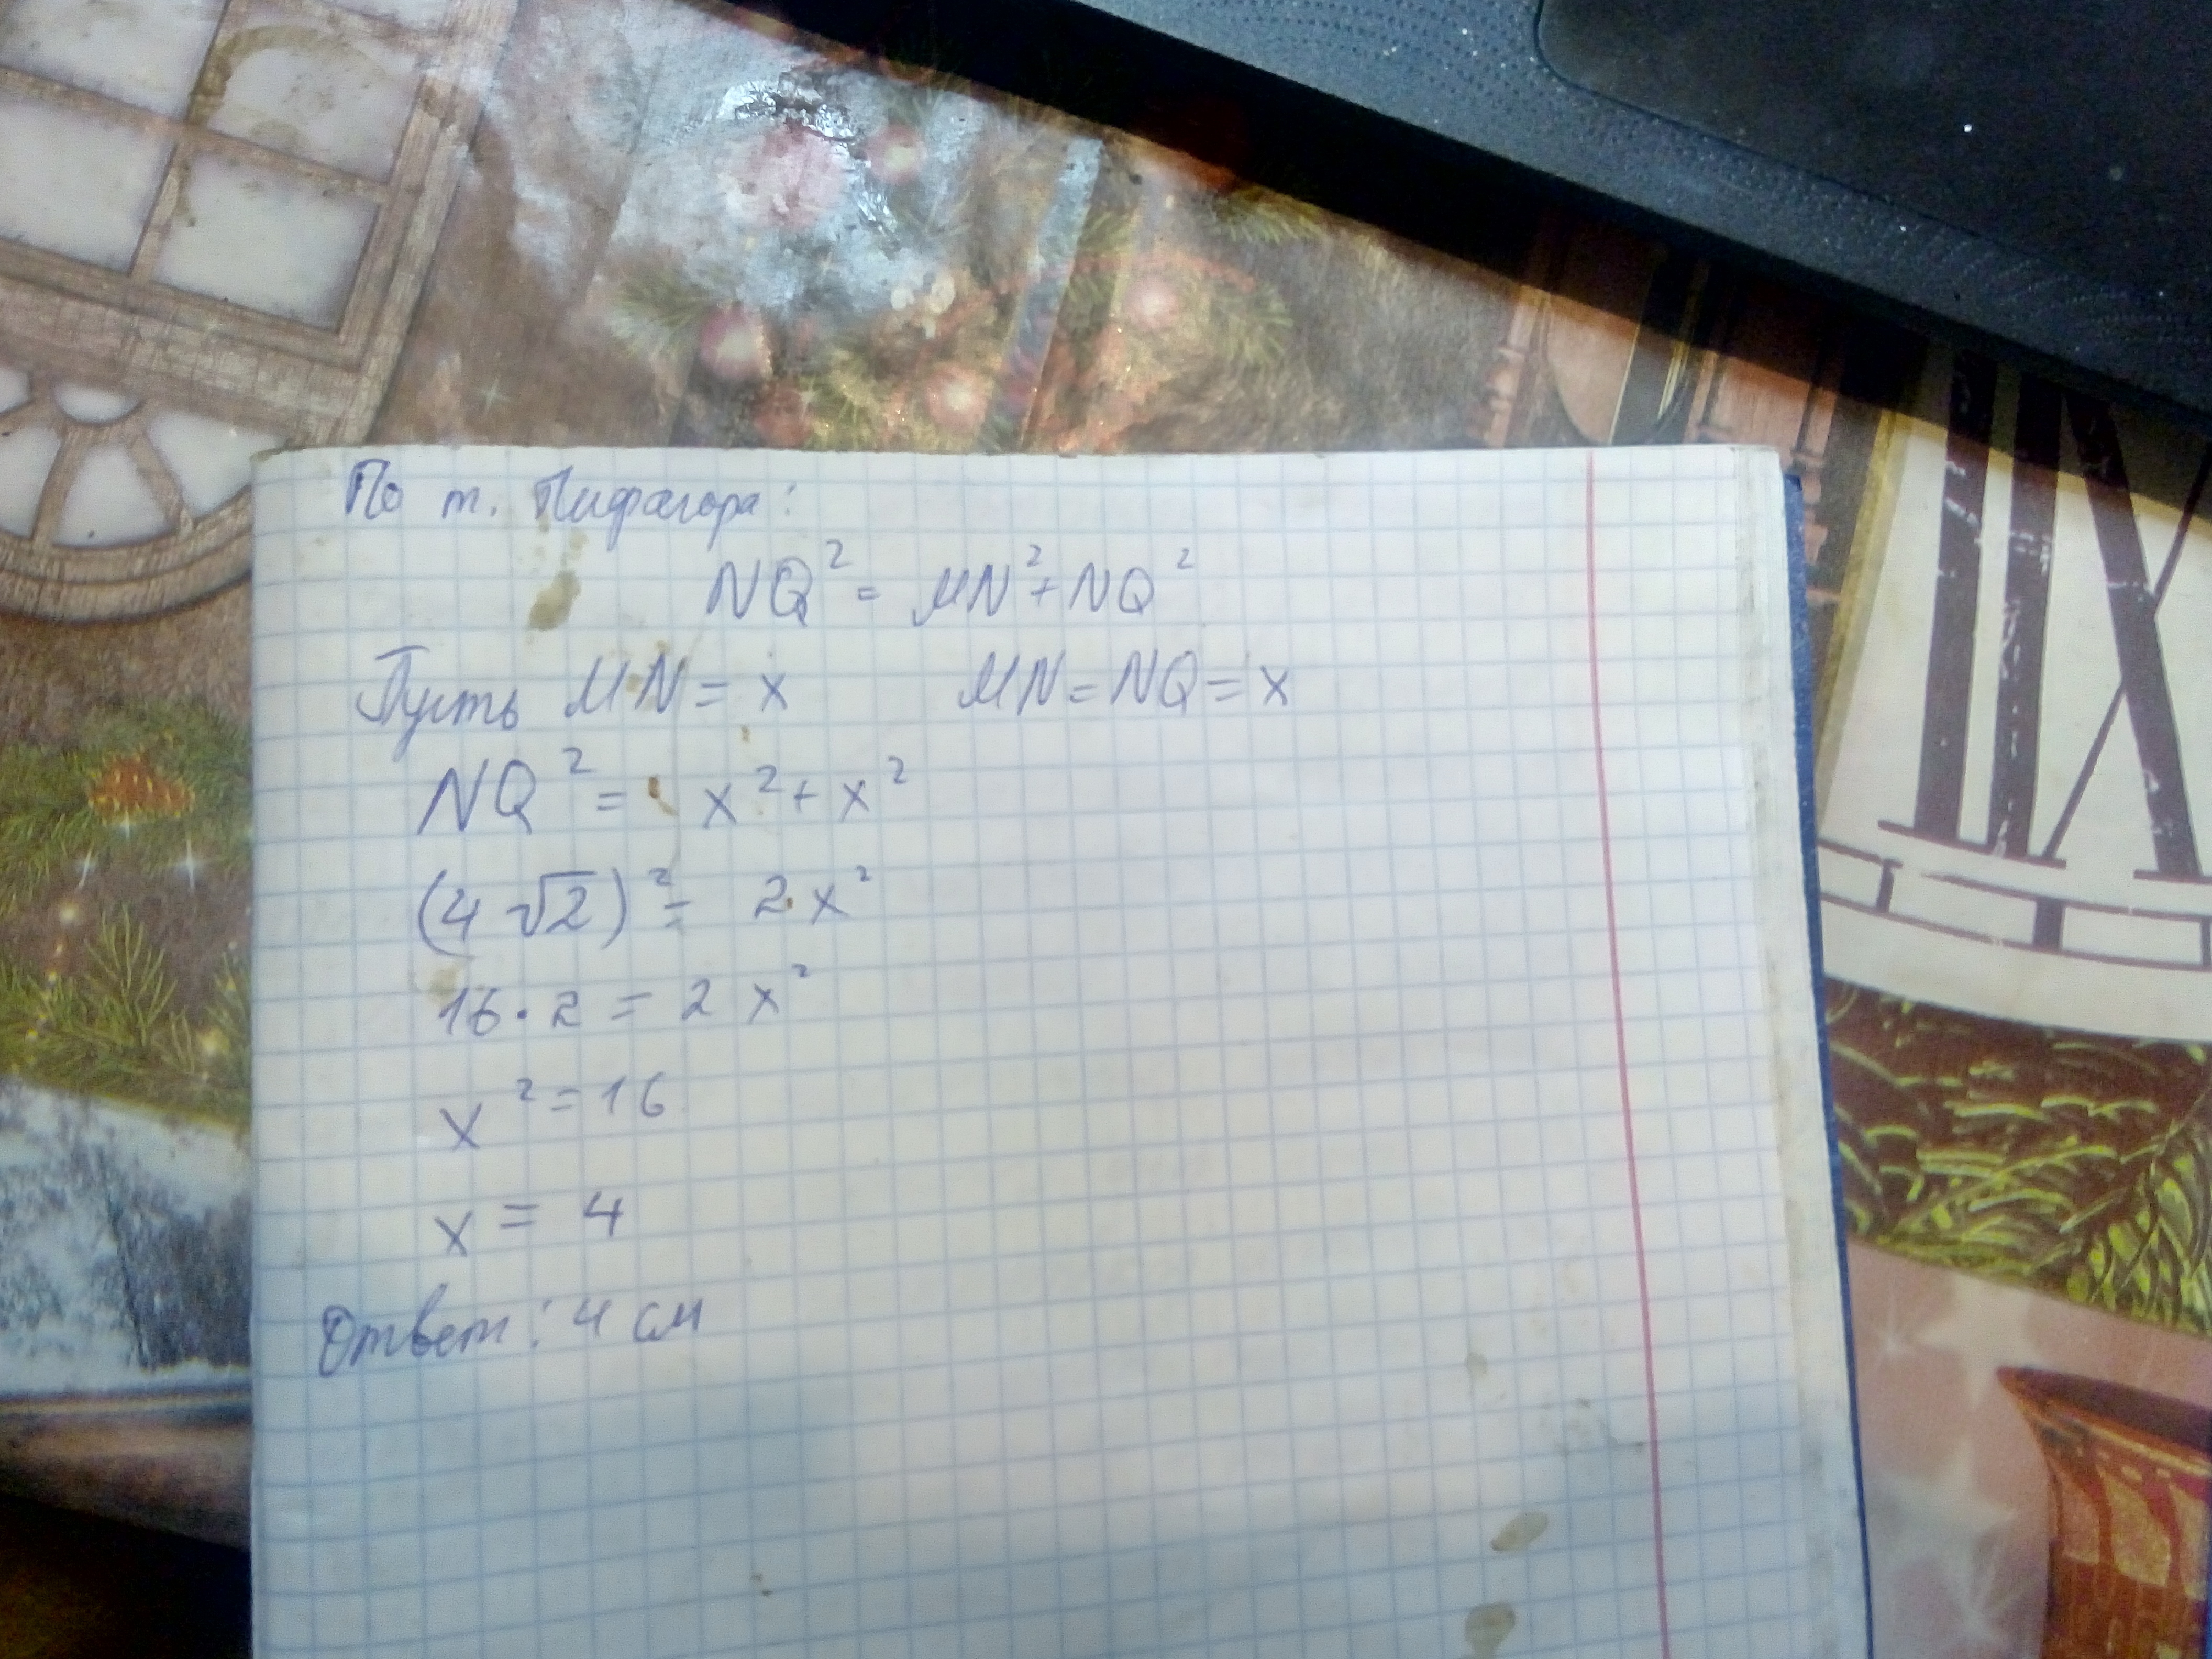 По т. Пифагора:
NQ² = MN² + NQ²
Пусть MN = x MN = NQ = x
NQ² = x² + x²
(4√2)² = 2x²
16·2 = 2x²
x² = 16
x = 4
Ответ: 4 см